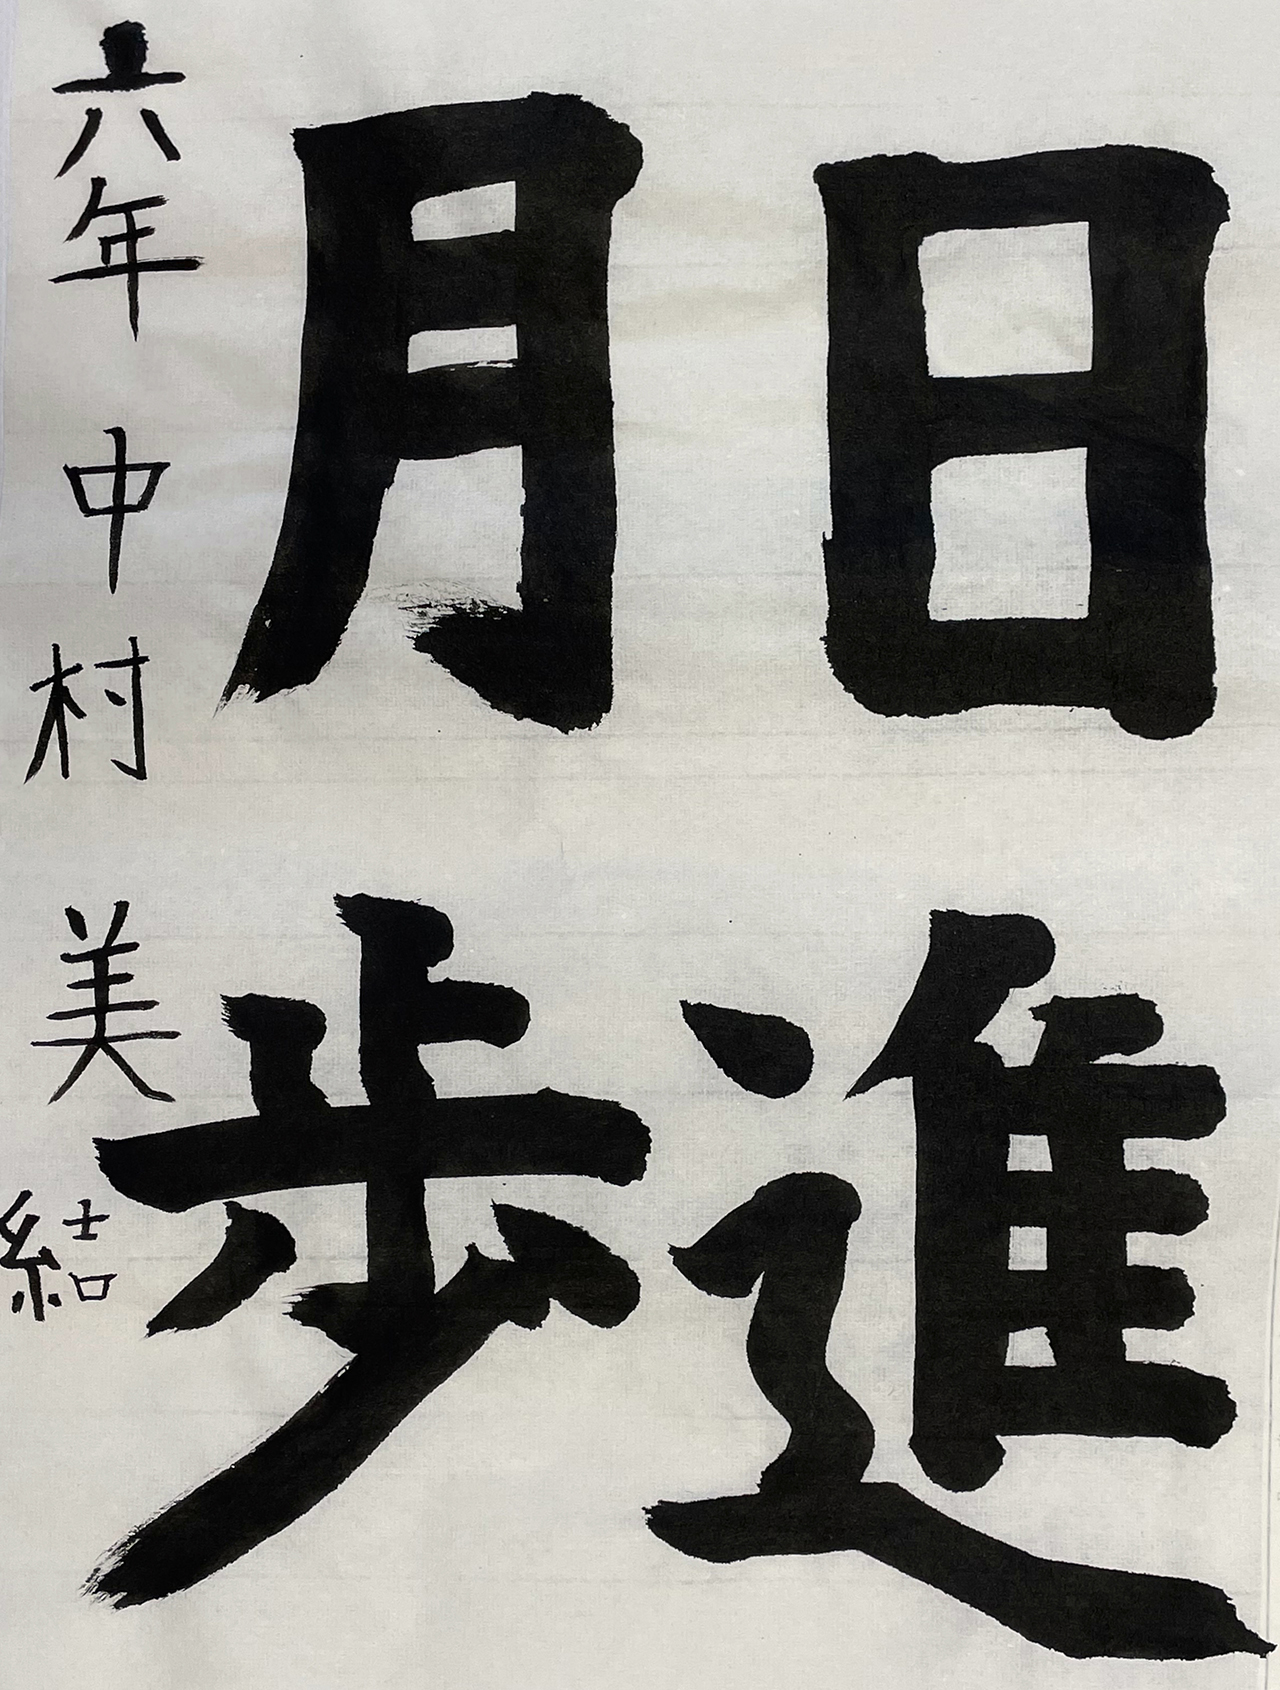 日進
月歩
六年 中村 美結